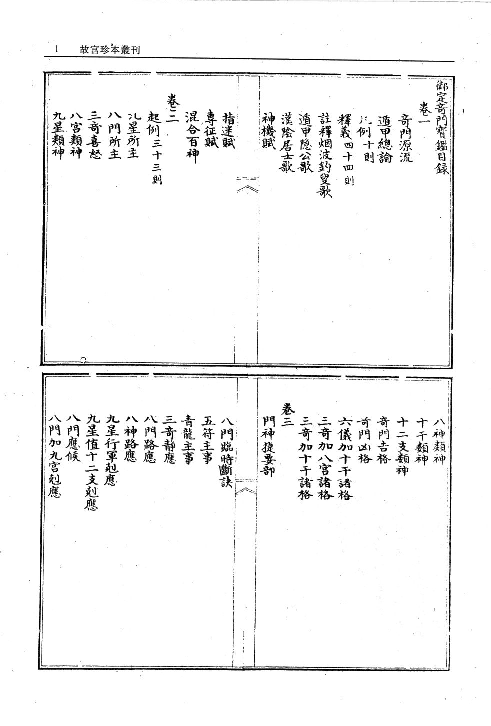 1 故宫珍本叢刊
御定奇門寶鑑目錄
卷一
奇門源流
遁甲總論
例十則
釋義四十四則
註釋烟波釣叟歌
遁甲隐公歌
漢陰居士歌
神機賦
指迷賦
專征賦
混合百神
卷二
起例三十三則
九星所主
八門所主
三奇喜怒
八宮類神
九星類神
八神類神
十干類神
十二支類神
奇門吉格
奇門凶格
六儀加十干諸格
三奇加八宮諸格
三奇加十干諸格
卷三
門神捷要部
八門臨時斷訣
五符主事
青龍主事
三奇靜應
八門路應
八神路應
九星行軍剋應
九星值十二支剋應
八門應候
八門加九宮剋應